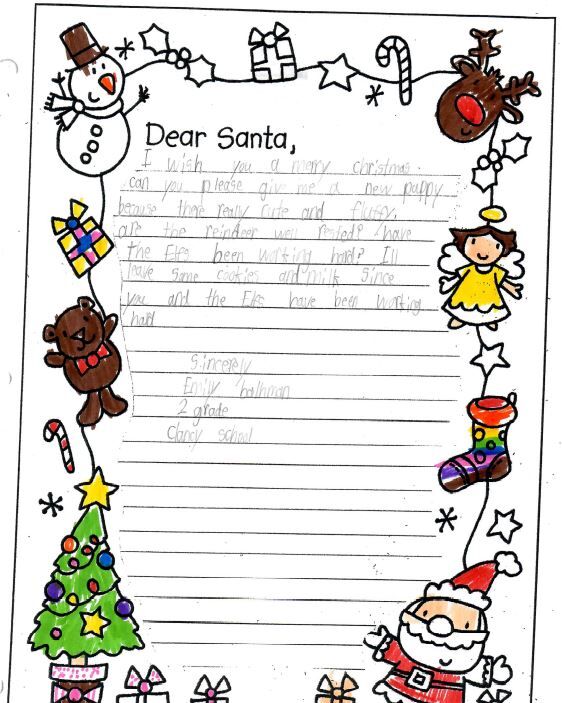 Dear Santa,
I wish you a merry christmas.
can you please give me a new puppy
because there really cute and fluffy.
are the reindeer well rested? have
the Elfs been working hard? Ill
leave some cookies and milk since
you and the Elfs have been working
hard
Sincerely
Emily
2 grade
Clancy school